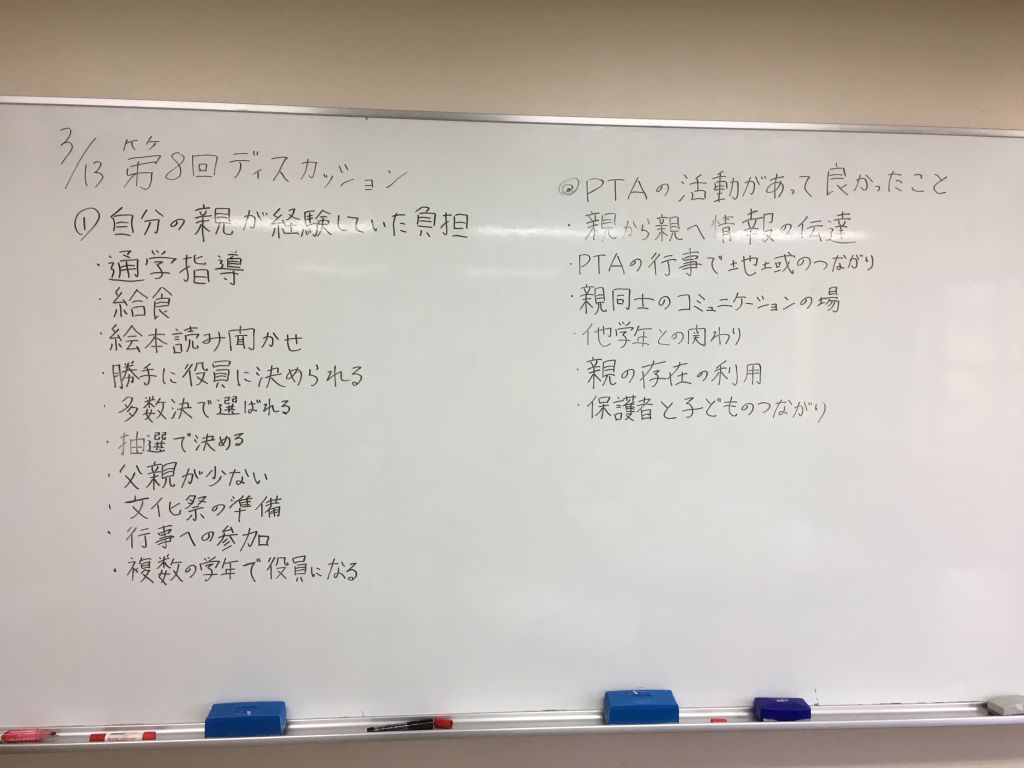 3/13 第8回ディスカッション
① 自分の親が経験していた負担
・通学指導
・給食
・絵本読み聞かせ
・勝手に役員に決められる
・多数決で選ばれる
・抽選で決める
・父親が少ない
・文化祭の準備
・行事への参加
・複数の学年で役員になる
② PTAの活動があって良かったこと
・親から親へ情報の伝達
・PTAの行事で地域のつながり
・親同士のコミュニケーションの場
・他学年との関わり
・親の存在の利用
・保護者と子どものつながり